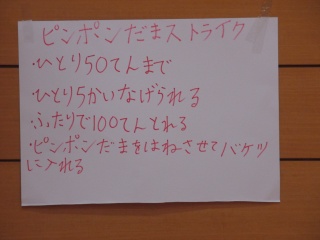 ピンポンだまストライク
・ひとり50てんまで
・ひとり5かいなげられる
・ふたりで100てんとれる
・ピンポンだまをはねさせてバケツ
に入れる